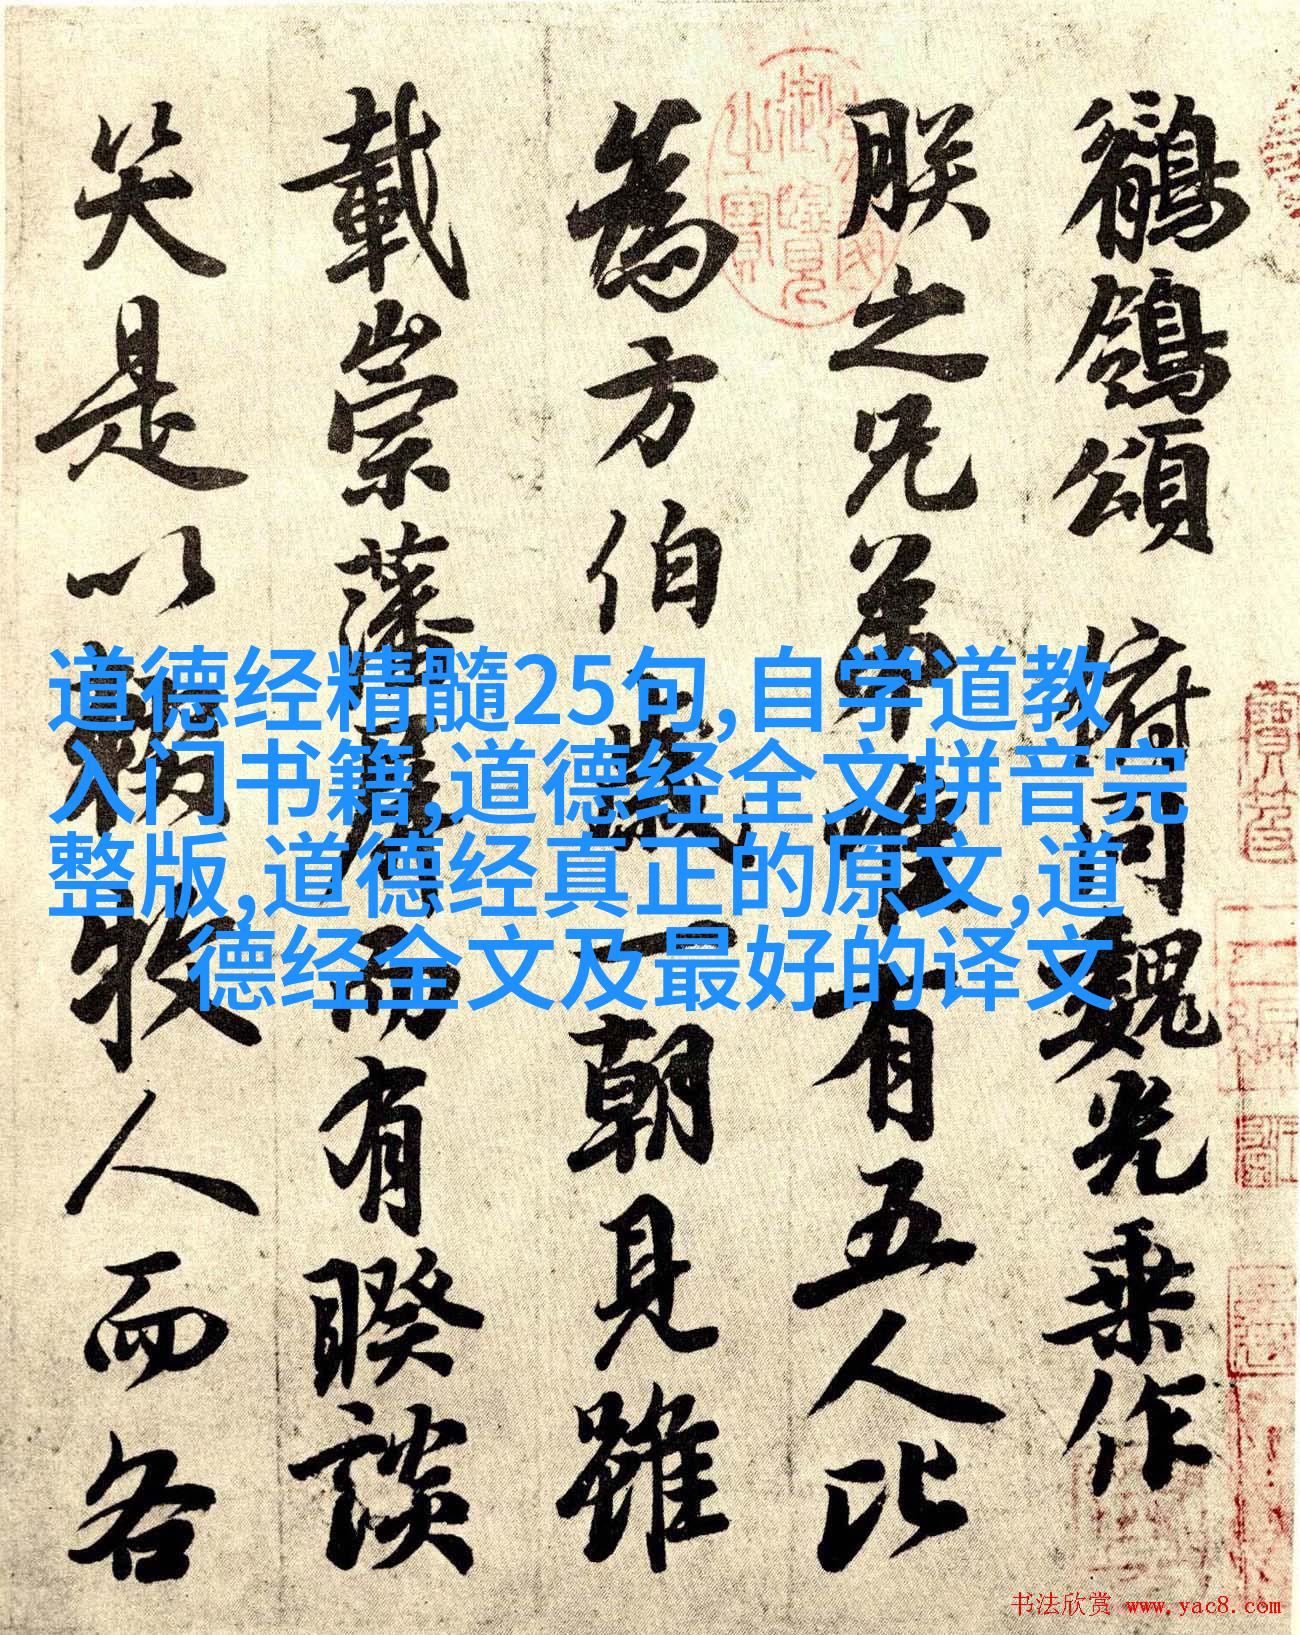 鶺鴒頌 俯同魏光乘作
朕之兄弟唯有五人比
為方伯歲一朝見雖
載崇藩屏而有睽談
笑是以輟牧人而各
道德经精髓25句,自学道教
入门书籍,道德经全文拼音完
整版,道德经真正的原文,道
德经全文及最好的译文
书法欣赏 www.yac8.com